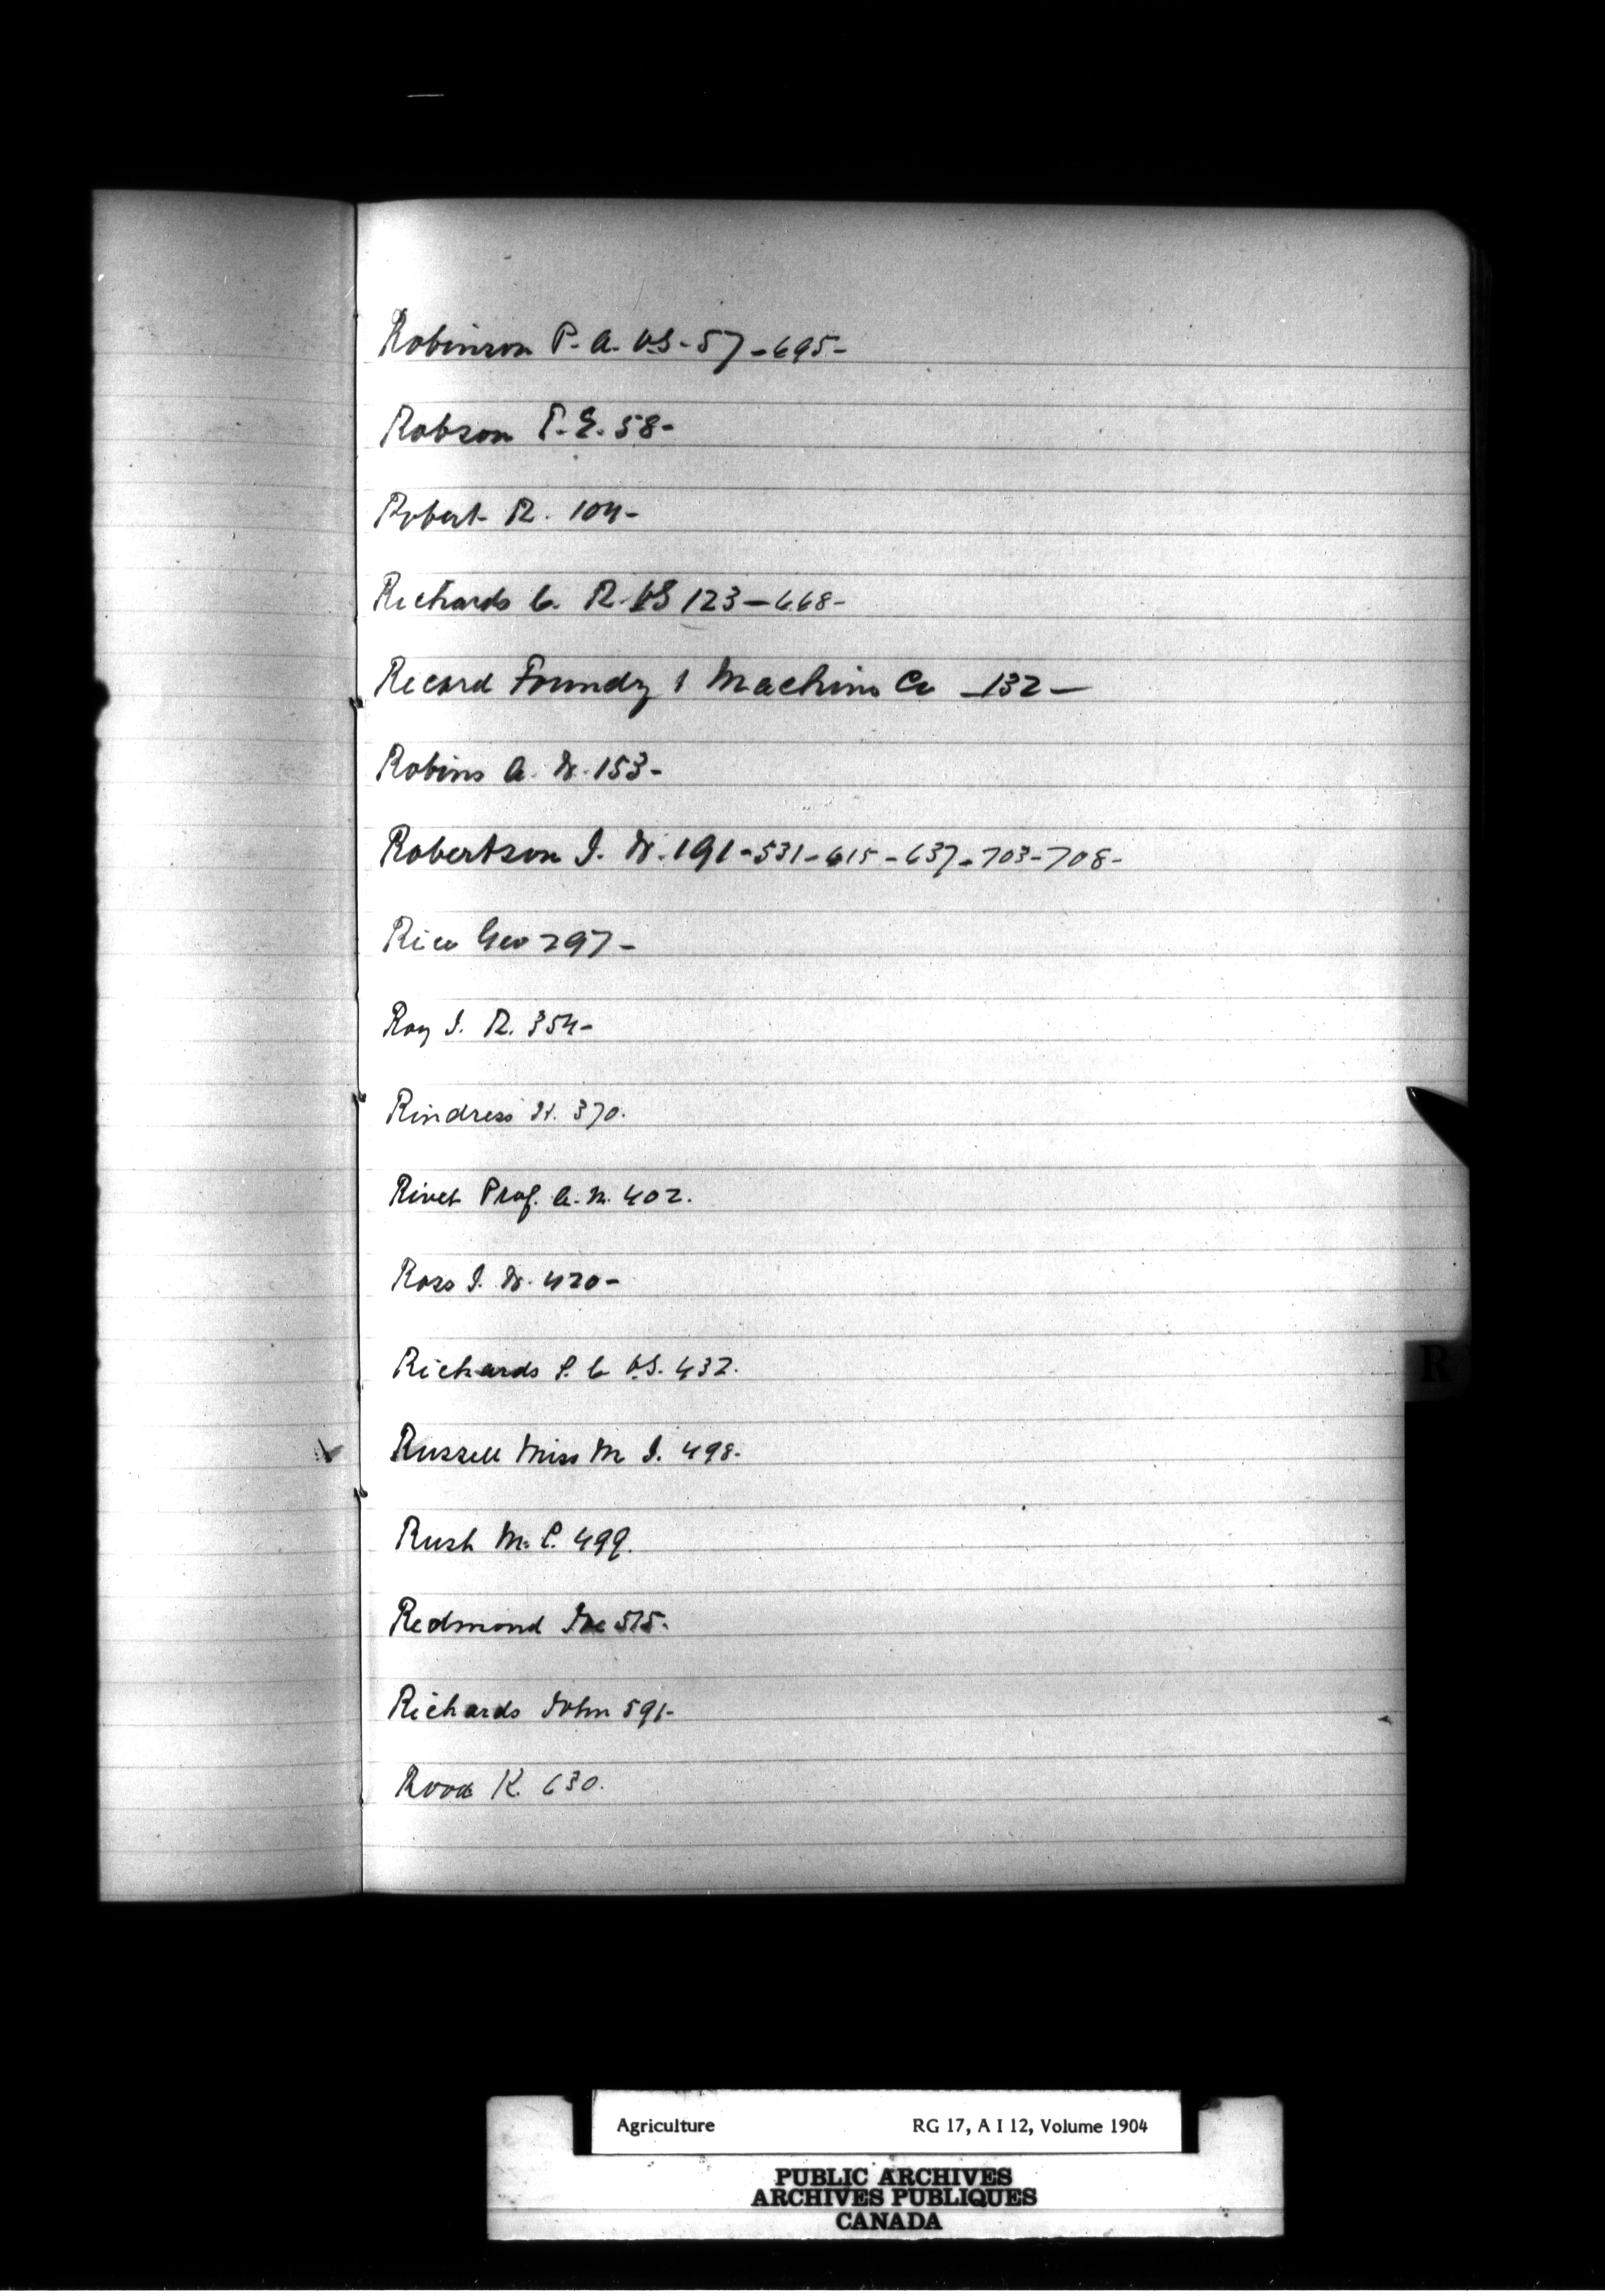 Robinson P. A. V.S. - 57 - 695 -
Robson T. E. 58 -
Robert R. 104 -
Richards C. R. VS 123 - 668 -
Record Foundry & Machine Co - 132 -
Robins A. W. 153 -
Robertson J. W. 191 - 531 - 615 - 637 - 703 - 708 -
Rice Geo 297 -
Roy J. R. 354 -
Rindress H. 370.
Rivet Prof. A. M. 402.
Ross J. W. 420 -
Richards P. C. V.S. 432.
Russell Miss M J. 498 -
Rush M. P. 499.
Redmond 515 -
Richards John 591 -
Rood K. 630.
R
Agriculture RG 17, A I 12, Volume 1904
PUBLIC ARCHIVES
ARCHIVES PUBLIQUES
CANADA